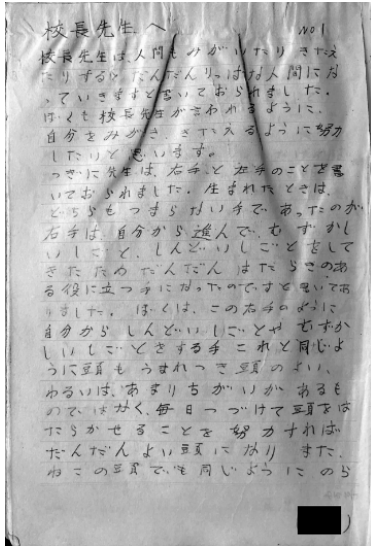 校長先生へ NO1
校長先生は、人間もみがいたりきたえ
たりすると、だんだんりっぱな人間にな
っていきますと書いておられました。
ぼくも校長先生が言われるように、
自分をみがき、きたえるように努力
したいと思います。
つぎに先生は、右手と左手のことを書
いておられました。生まれたときは、
どちらもつまらない手であったのが
右手は、自分から進んで、むずかし
いしごと、しんどいしごとをして
きたためだんだんはたらきのあ
る役に立つ手になったのですと書いてお
りました。ぼくは、この右手のように
自分からしんどいしごとやむずか
しいしごとをする手これと同じよ
うに頭もうまれつき頭のよい、
わるいは、あまりちがいがあるも
のではなく、毎日つづけて頭をは
たらかせることを努力すれば
だんだんよい頭になりまた、
ねこの頭でも同じようにのら
)